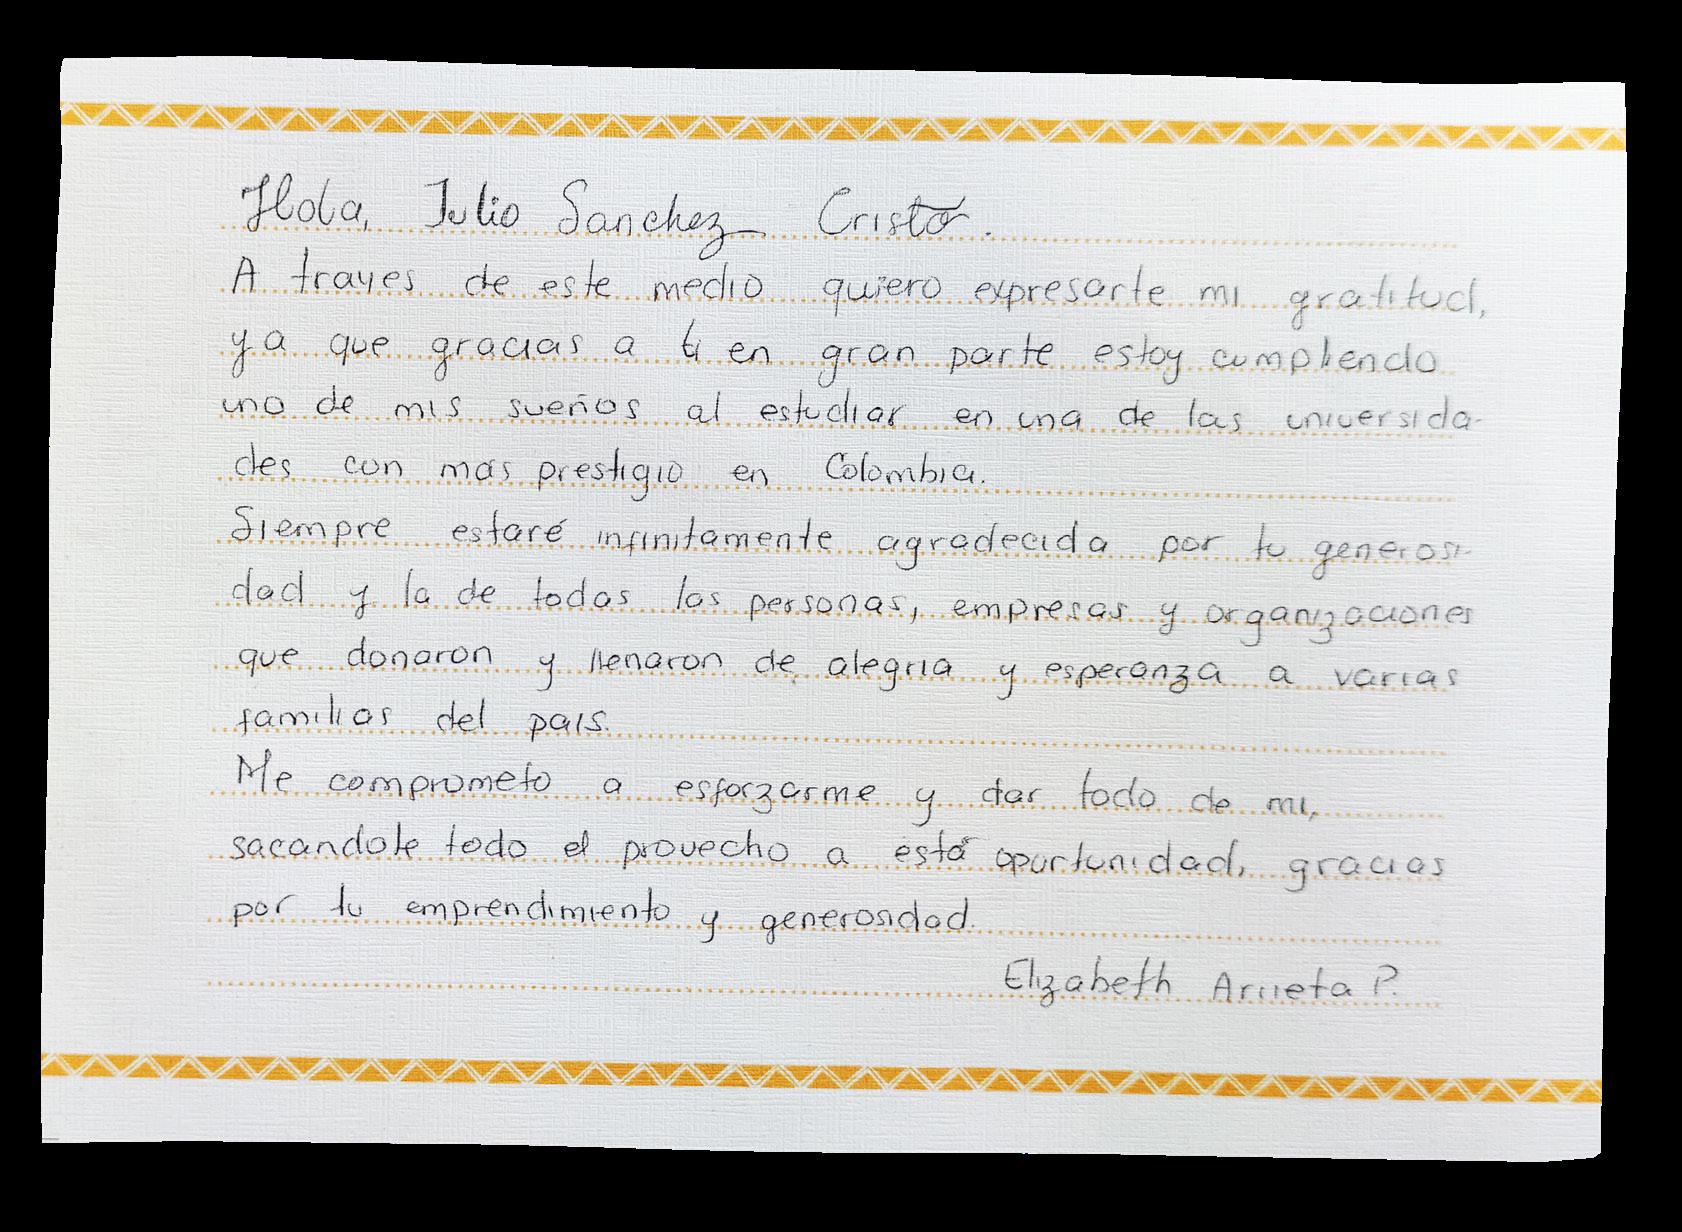 Hola, Julio Sanchez Cristo.
A traves de este medio quiero expresarte mi gratitud,
ya que gracias a ti en gran parte estoy cumpliendo
uno de mis sueños al estudiar en una de las universida-
des con mas prestigio en Colombia.
Siempre estaré infinitamente agradecida por tu generosi-
dad y la de todas las personas, empresas y organizaciones
que donaron y llenaron de alegria y esperanza a varias
familias del pais.
Me comprometo a esforzarme y dar todo de mi,
sacandole todo el provecho a está oportunidad, gracias
por tu emprendimiento y generosidad.
Elizabeth Arrieta P.